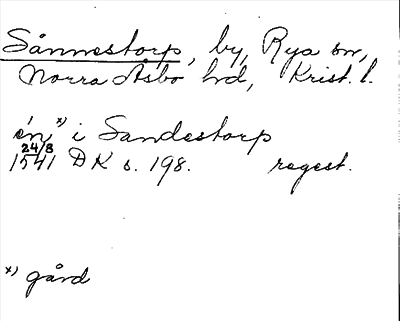 Sånnestorp, by, Rya sn,
Norra Åsbo hd, Krist. l.
én x) i Sandestorp
24/8
1541 DK s. 198. regest.
x) gård